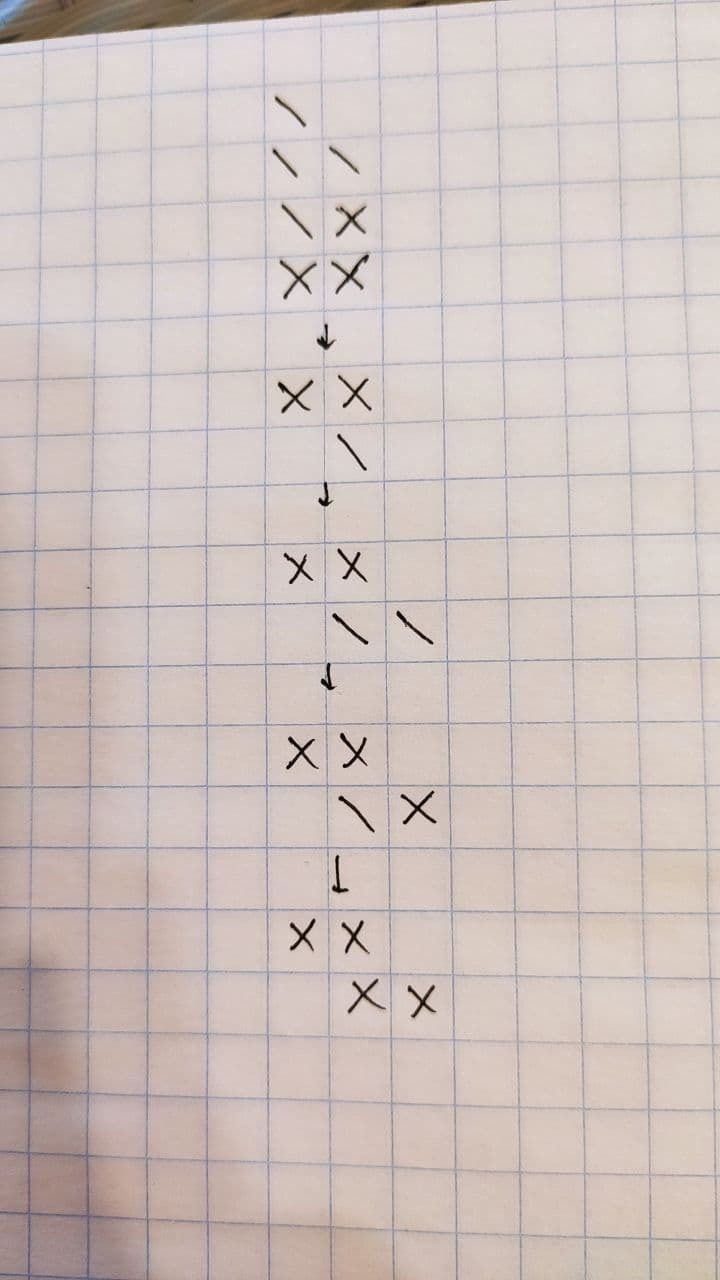 \
\ \
\ X
X X
↓
X X
\
↓
X X
\ \
↓
X X
\ X
↓
X X
X X